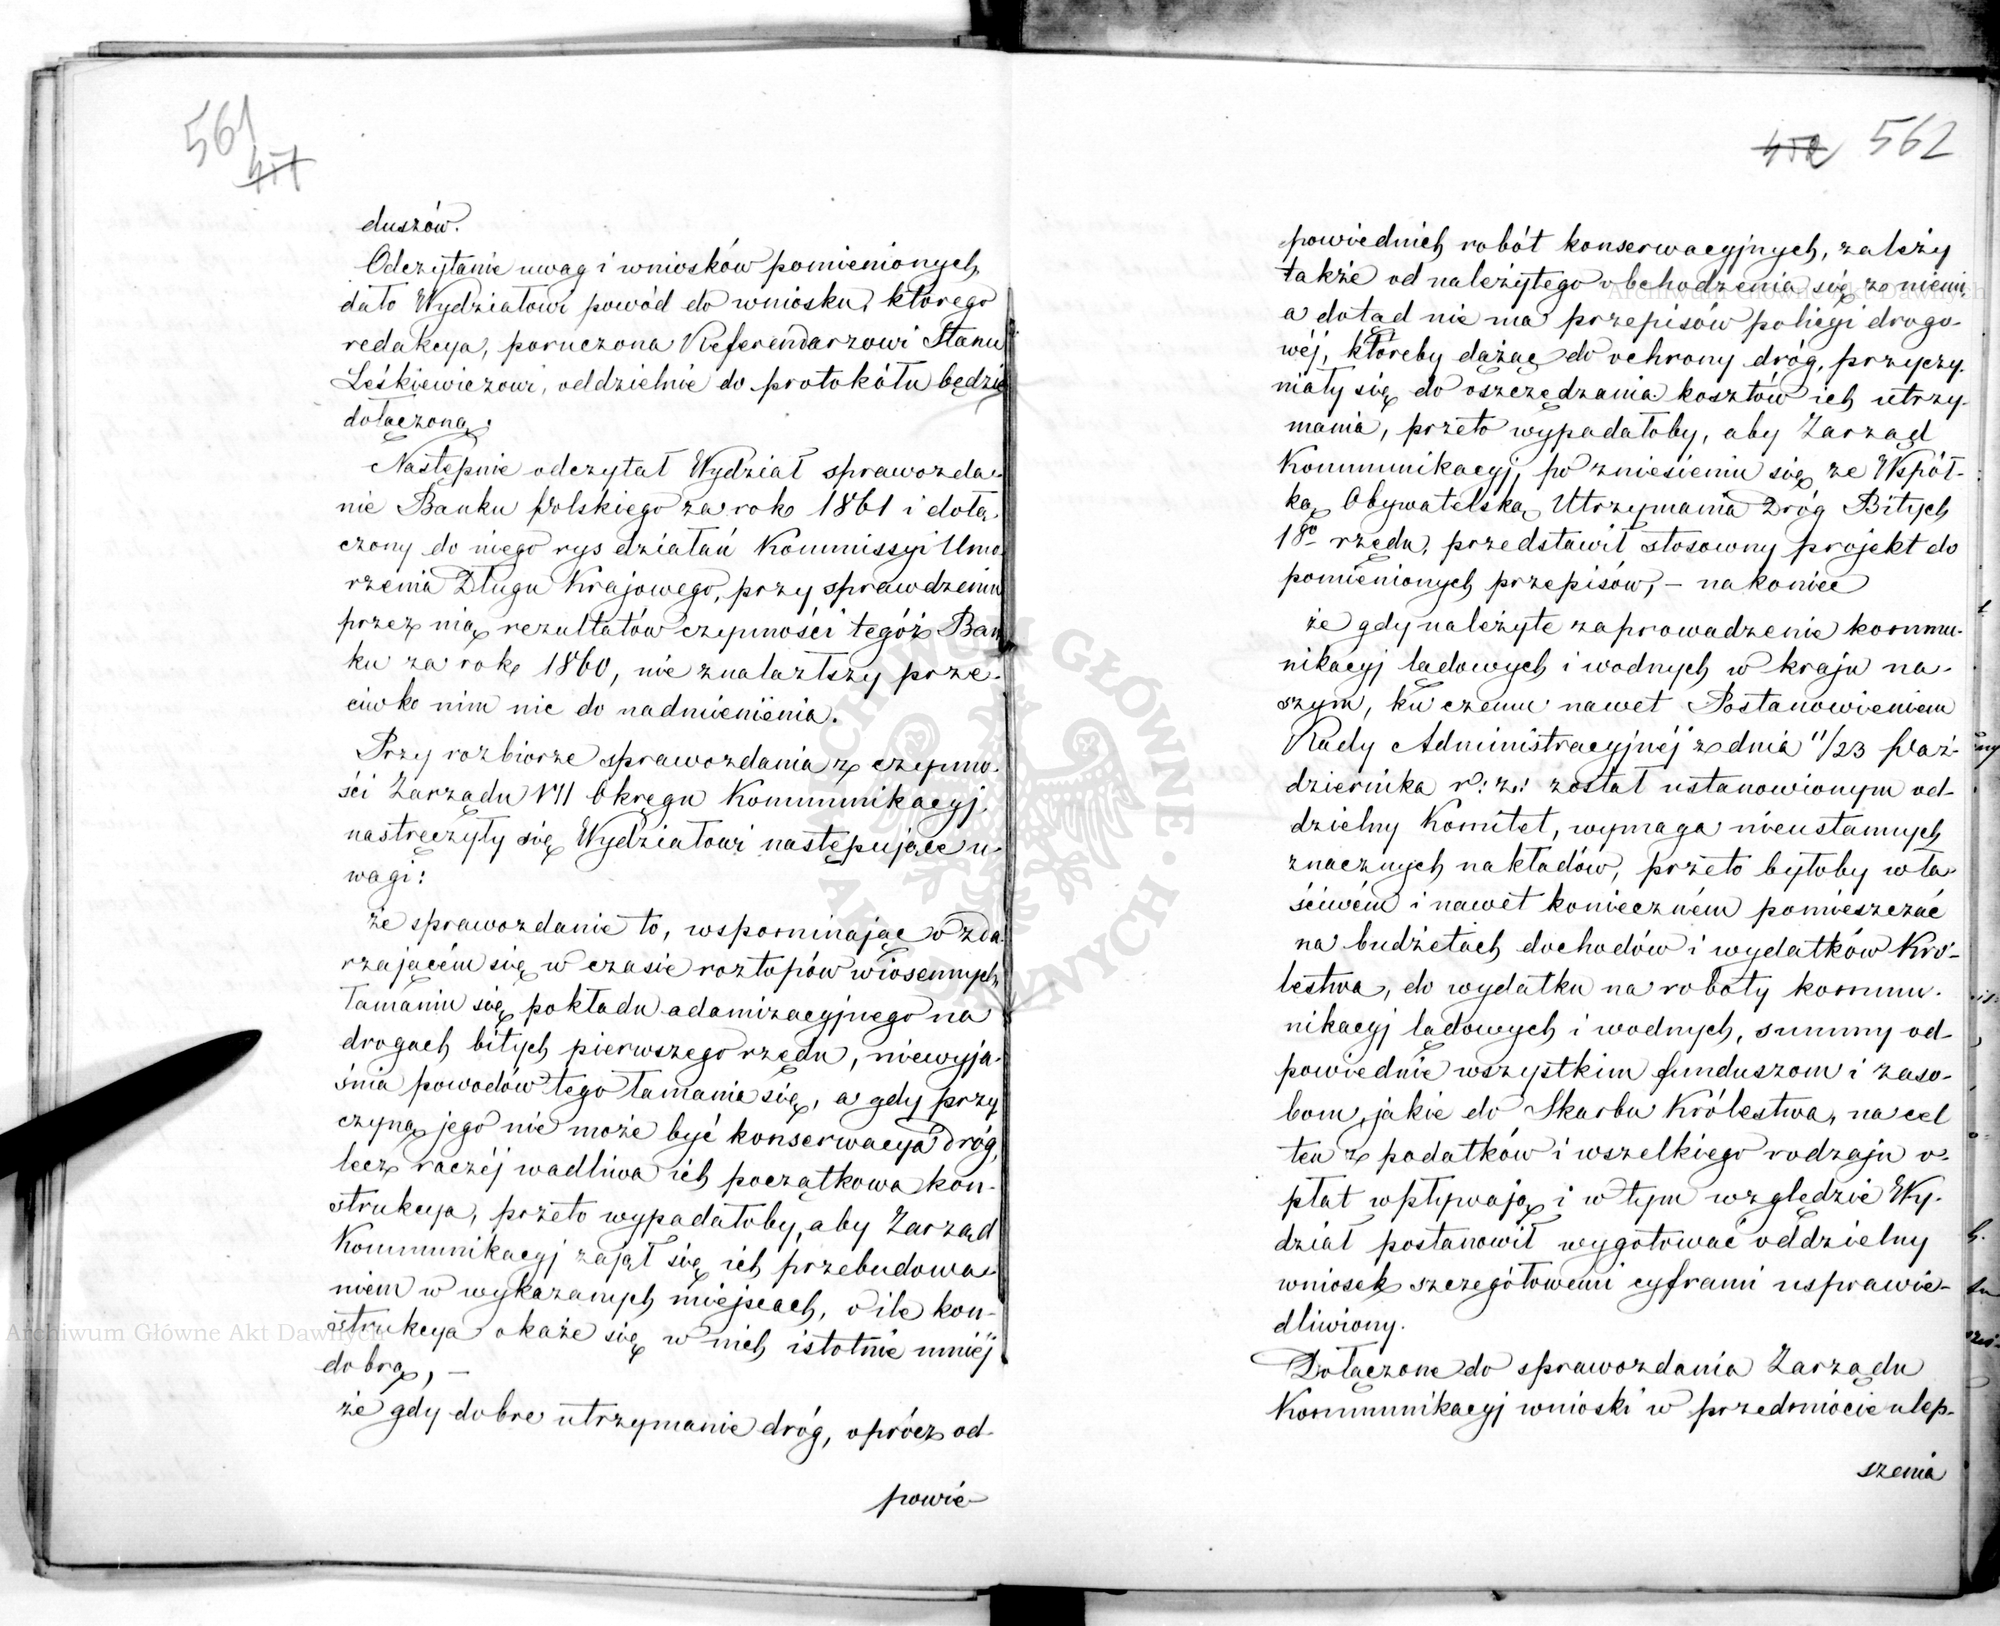 561
451
duszów.
Odczytanie uwag i wniosków pomienionych,
dało Wydziałowi powód do wniosku, którego
redakcya, poruczona Referendarzowi Stanu
Leśkiewiczowi, oddzielnie do protokółu będzie
dołączoną.
Następnie odczytał Wydział sprawozda-
nie Banku Polskiego za rok 1861 i dołą-
czony do niego rys działań Kommissyi Umo-
rzenia Długu Krajowego, przy sprawdzeniu
przez nią rezultatów czynności tegóż Ban-
ku za rok 1860, nie znalazłszy prze-
ciwko nim nic do nadmienienia.
Przy rozbiorze sprawozdania z czynno-
ści Zarządu VII Okręgu Kommunikacyj,
nastręczyły się Wydziałowi następujące u-
wagi:
że sprawozdanie to, wspominając o zda-
rzającém się w czasie roztopów wiosennych,
łamaniu się pokładu adamizacyjnego na
drogach bitych pierwszego rzędu, niewyja-
śnia powodów tego łamania się, a gdy przy-
czyną jego nie może być konserwacya dróg,
lecz raczéj wadliwa ich początkowa kon-
strukcya, przeto wypadałoby, aby Zarząd
Kommunikacyj zajął się ich przebudowa-
niem w wykazanych miejscach, o ile kon-
strukcya okaże się w nich istotnie mniéj
dobrą, —
że gdy dobre utrzymanie dróg, oprócz od-
powie-
452 562
powiednich robót konserwacyjnych, zależy
także od należytego obchodzenia się z niemi,
a dotąd nie ma przepisów policyi drogo-
wéj, któreby dążąc do ochrony dróg, przyczy-
niały się do oszczędzania kosztów ich utrzy-
mania, przeto wypadałoby, aby Zarząd
Kommunikacyj, po zniesieniu się ze Współ-
ką Obywatelską Utrzymania Dróg Bitych
1go rzędu, przedstawił stosowny projekt do
pomienionych przepisów, — nakoniec
że gdy należyte zaprowadzenie kommu-
nikacyj lądowych i wodnych w kraju na-
szym, ku czemu nawet Postanowieniem
Rady Administracyjnéj z dnia 11/23 Paź-
dziernika r: z: został ustanowionym od-
dzielny Komitet, wymaga nieustannych
znacznych nakładów, przeto byłoby wła-
ściwém i nawet konieczném pomieszczać
na budżetach dochodów i wydatków Kró-
lestwa, do wydatku na roboty kommu-
nikacyj lądowych i wodnych, summy od-
powiednie wszystkim funduszom i zaso-
bom, jakie do Skarbu Królestwa, na cel
ten z podatków i wszelkiego rodzaju o-
płat wpływają, i w tym względzie Wy-
dział postanowił wygotować oddzielny
wniosek szczegółowemi cyframi usprawie-
dliwiony.
Dołączone do sprawozdania Zarządu
Kommunikacyj wnioski w przedmiocie ulep-
szenia
Archiwum Główne Akt Dawnych
Archiwum Główne Akt Dawnych
ARCHIWUM GŁÓWNE · AKT DAWNYCH ·